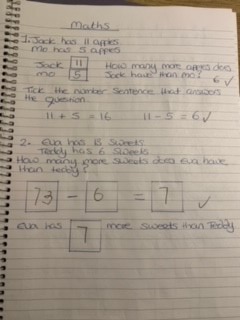 Maths
1. Jack has 11 apples.
Mo has 5 apples
Jack 11 How many more apples does
Mo 5 Jack have than mo?
6 ✓
Tick the number sentence that answers
the question
11 + 5 = 16 11 - 5 = 6 ✓
2. Eva has 13 sweets
Teddy has 6 sweets
How many more sweets does Eva have
than teddy?
13 - 6 = 7 ✓
Eva has 7 more sweets than Teddy